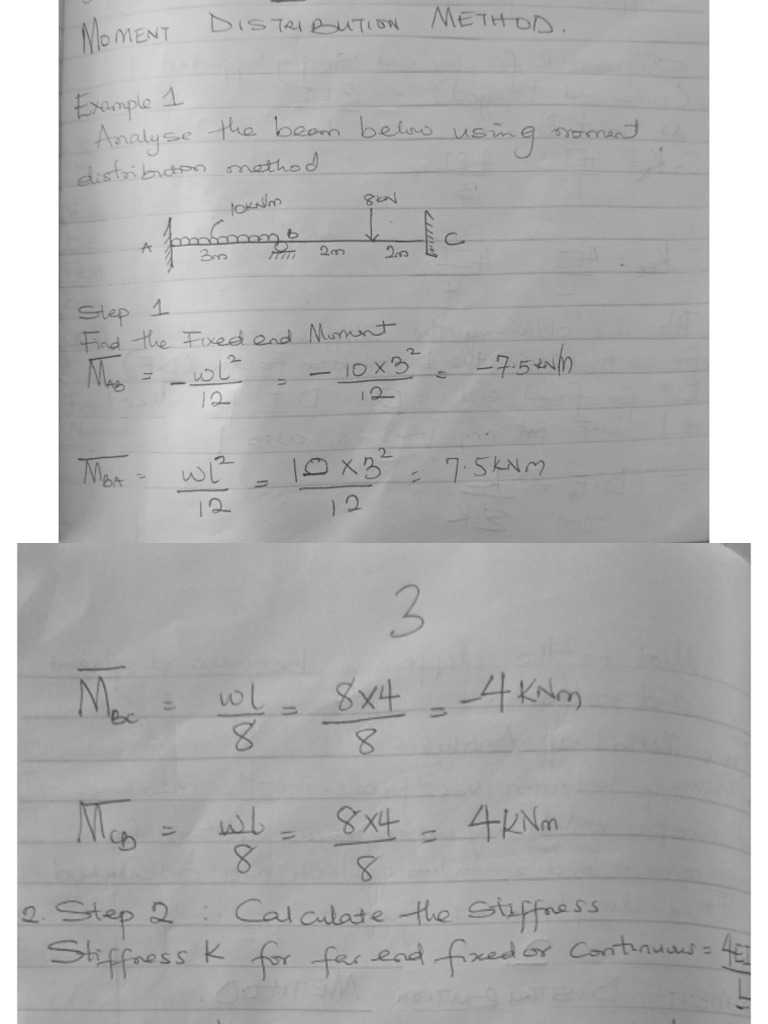 MOMENT DISTRIBUTION METHOD.
Example 1
Analyse the beam below using moment
distribution method
10kN/m 8kN
A B C
3m 2m 2m
Step 1
Find the Fixed end Moment
M̅AB = - wl²/12 = - 10 x 3²/12 = -7.5kN/m
M̅BA = wl²/12 = 10 x 3²/12 = 7.5KNm
3
M̅BC = wl/8 = 8x4/8 = -4KNm
M̅CB = wl/8 = 8x4/8 = 4KNm
2. Step 2 : Calculate the Stiffness
Stiffness K for far end fixed or continuous = 4EI/L